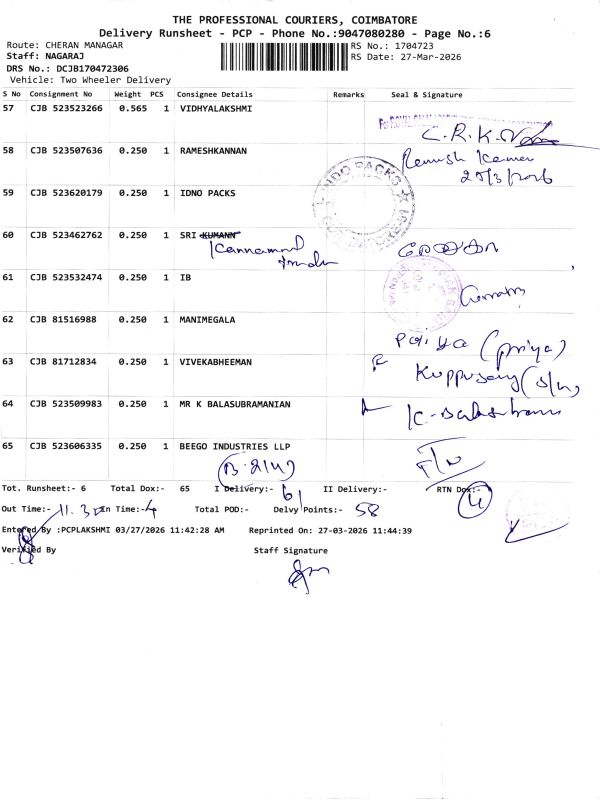 THE PROFESSIONAL COURIERS, COIMBATORE
Delivery Runsheet - PCP - Phone No.:9047080280 - Page No.:6
Route: CHERAN MANAGAR RS No.: 1704723
Staff: NAGARAJ RS Date: 27-Mar-2026
DRS No.: DCJB170472306
Vehicle: Two Wheeler Delivery
S No Consignment No Weight PCS Consignee Details Remarks Seal & Signature
57 CJB 523523266 0.565 1 VIDHYALAKSHMI
C.R.K.
58 CJB 523507636 0.250 1 RAMESHKANNAN
Ramesh Kannan
27/3/2026
59 CJB 523620179 0.250 1 IDNO PACKS
INDO PACKS
60 CJB 523462762 0.250 1 SRI KUMANN
Kannammal
61 CJB 523532474 0.250 1 IB
62 CJB 81516988 0.250 1 MANIMEGALA
(Priya)
63 CJB 81712834 0.250 1 VIVEKABHEEMAN
Kuppusamy (S/W)
64 CJB 523509983 0.250 1 MR K BALASUBRAMANIAN
K-Balasubrama
65 CJB 523606335 0.250 1 BEEGO INDUSTRIES LLP
Tot. Runsheet:- 6 Total Dox:- 65 I Delivery:- 61 II Delivery:- RTN Dox:- 4
Out Time:- 11.30 In Time:-4 Total POD:- Delvy Points:- 58
Entered By :PCPLAKSHMI 03/27/2026 11:42:28 AM Reprinted On: 27-03-2026 11:44:39
Verified By Staff Signature